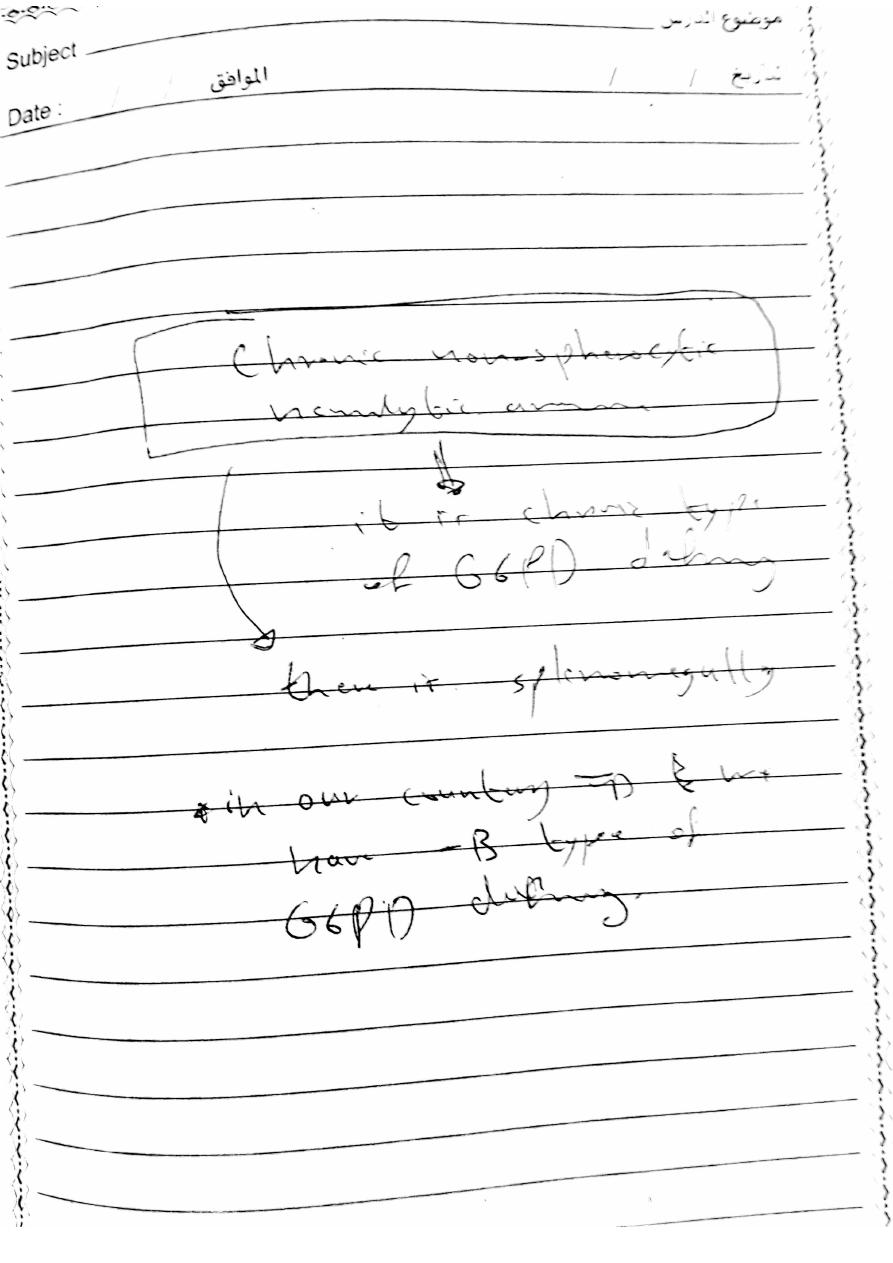 موضوع الدرس
Subject
الموافق / / تاريخ
Date :
Chronic non-spherocytic
hemolytic
it is chronic type
of G6PD
there is splenomegally
* in our country we
have -B types of
G6PD